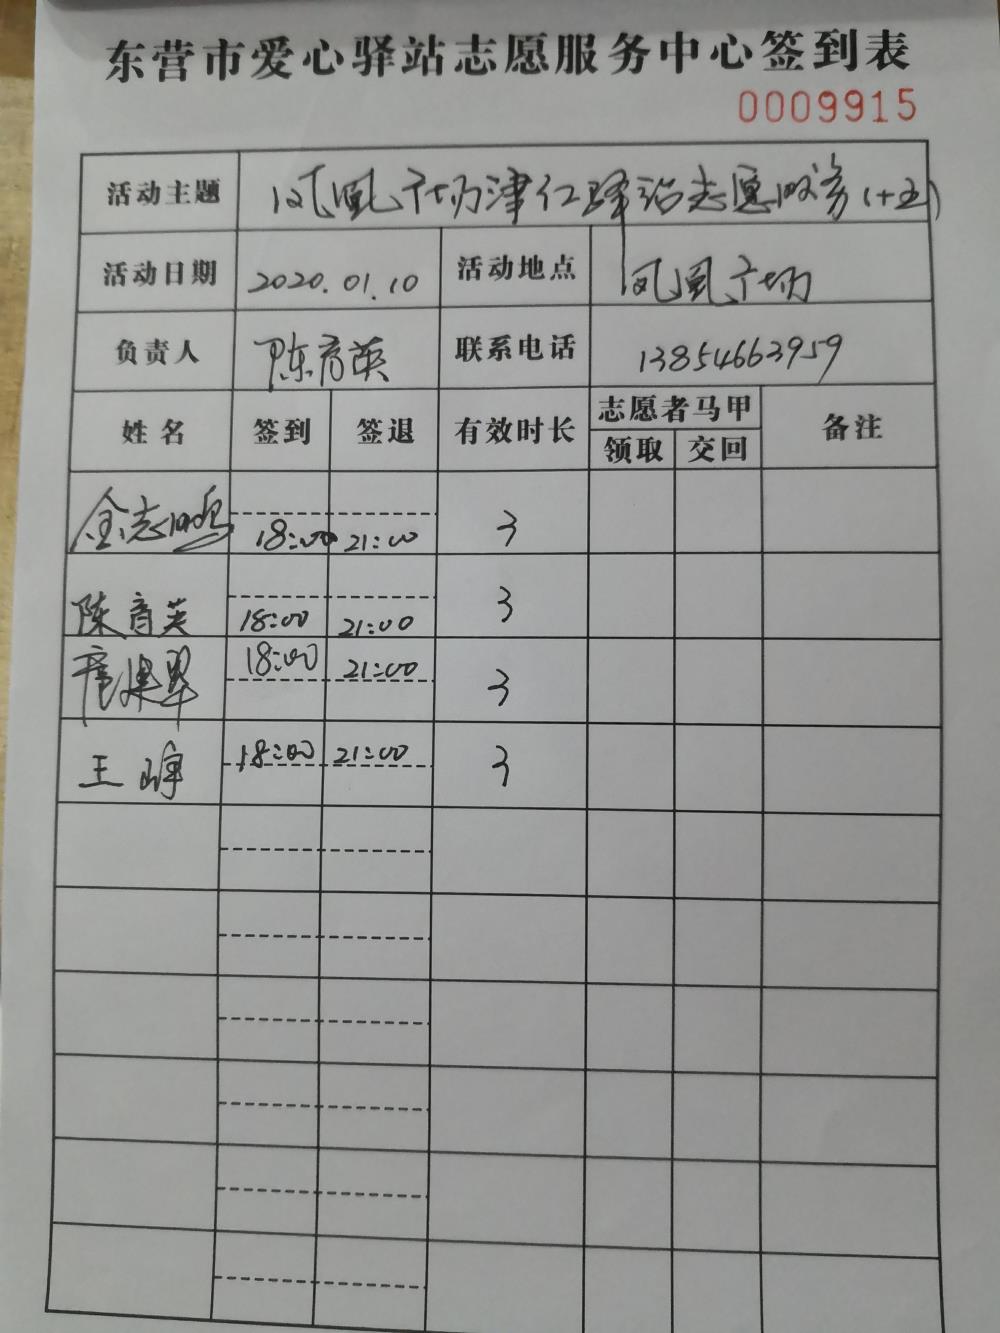 东营市爱心驿站志愿服务中心签到表
0009915
活动主题 凤凰广场津仁驿站志愿服务(十五)
活动日期 2020.01.10 活动地点 凤凰广场
负责人 陈育英 联系电话 13854663959
姓名 签到 签退 有效时长 志愿者马甲 备注
领取 交回
金志鸣 18:00 21:00 3
陈育英 18:00 21:00 3
18:00 21:00 3
王峥 18:00 21:00 3